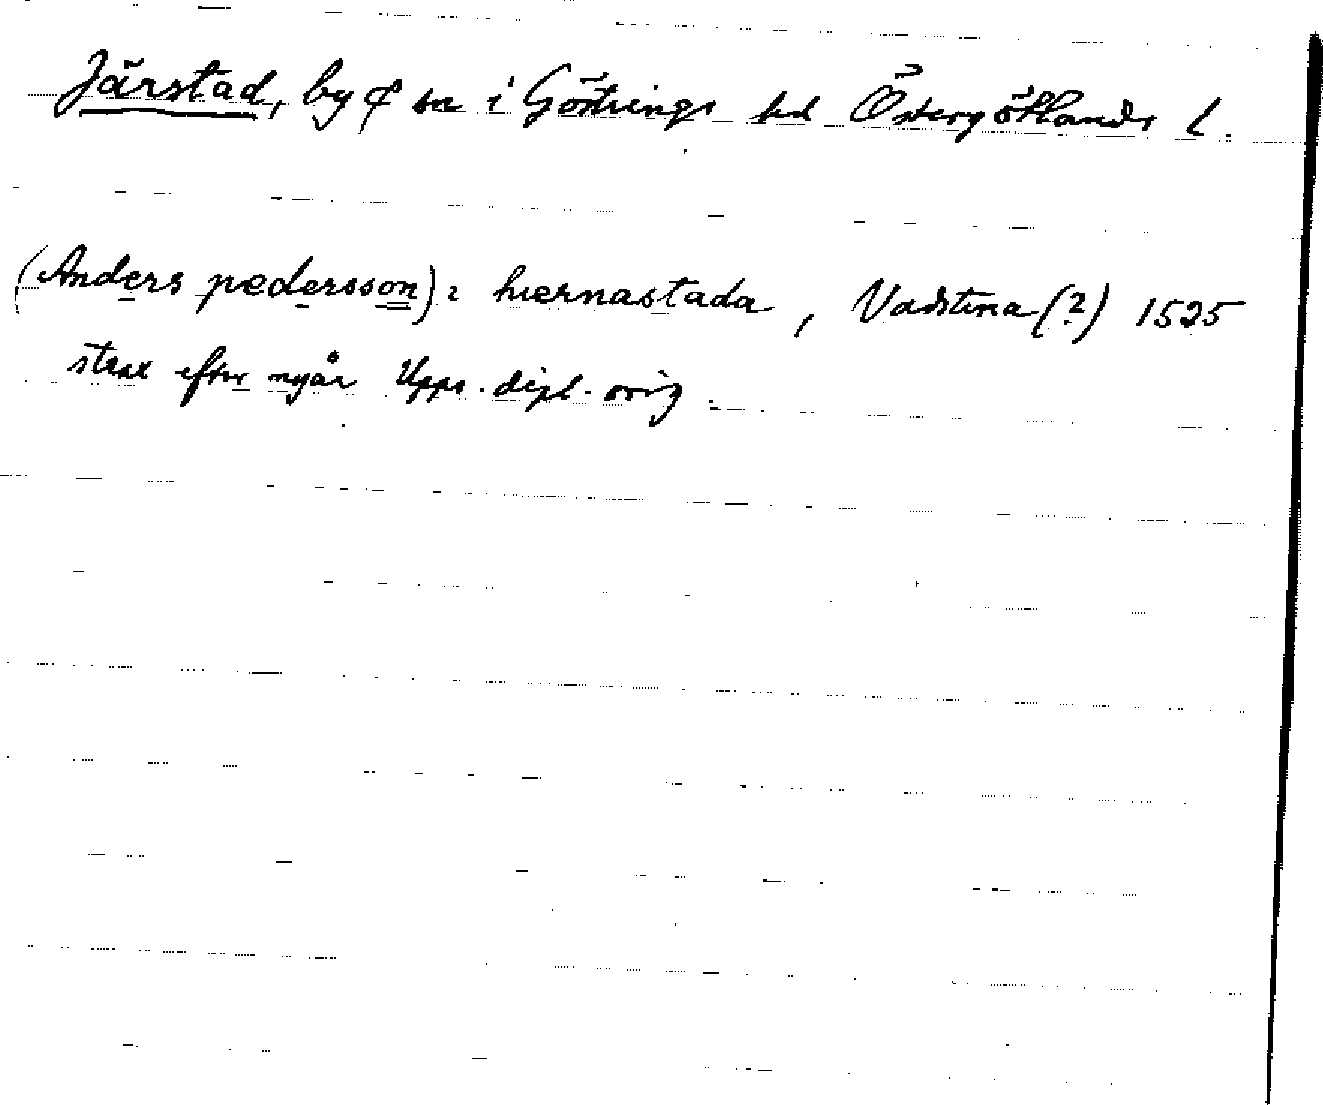 Järstad, by o sn i Göstrings hd Östergötlands l.
(Anders pedersson) i hiernastada, Vadstena (?) 1525
strax efter nyår Upps. dipl. orig.